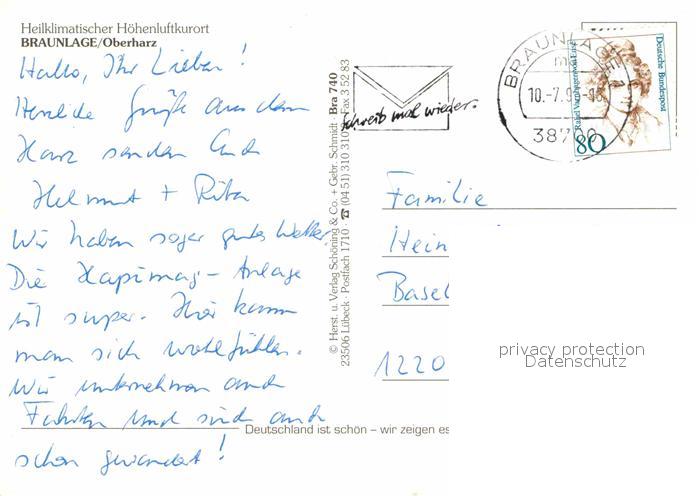 Heilklimatischer Höhenluftkurort
BRAUNLAGE/Oberharz
Hallo, Ihr Lieben!
Herzliche Grüße aus dem
Harz senden Euch
Helmut + Rita
Wir haben sogar gutes Wetter.
Die Hapimag-Anlage
ist super. Hier kann
man sich wohlfühlen.
Wir unternehmen auch
Fahrten und sind auch
schon gewandert!
© Herst. u. Verlag Schöning & Co. + Gebr. Schmidt Bra 740
23506 Lübeck · Postfach 1710 · ☎ (04 51) 310 310 Fax 3 52 83
Schreib mal wieder.
BRAUNLAGE 1
m
10.-7.9
38700
Deutsche Bundespost
Rahel Varnhagen von Ense
80
Familie
Hein
Basel
1220
privacy protection
Datenschutz
Deutschland ist schön – wir zeigen es